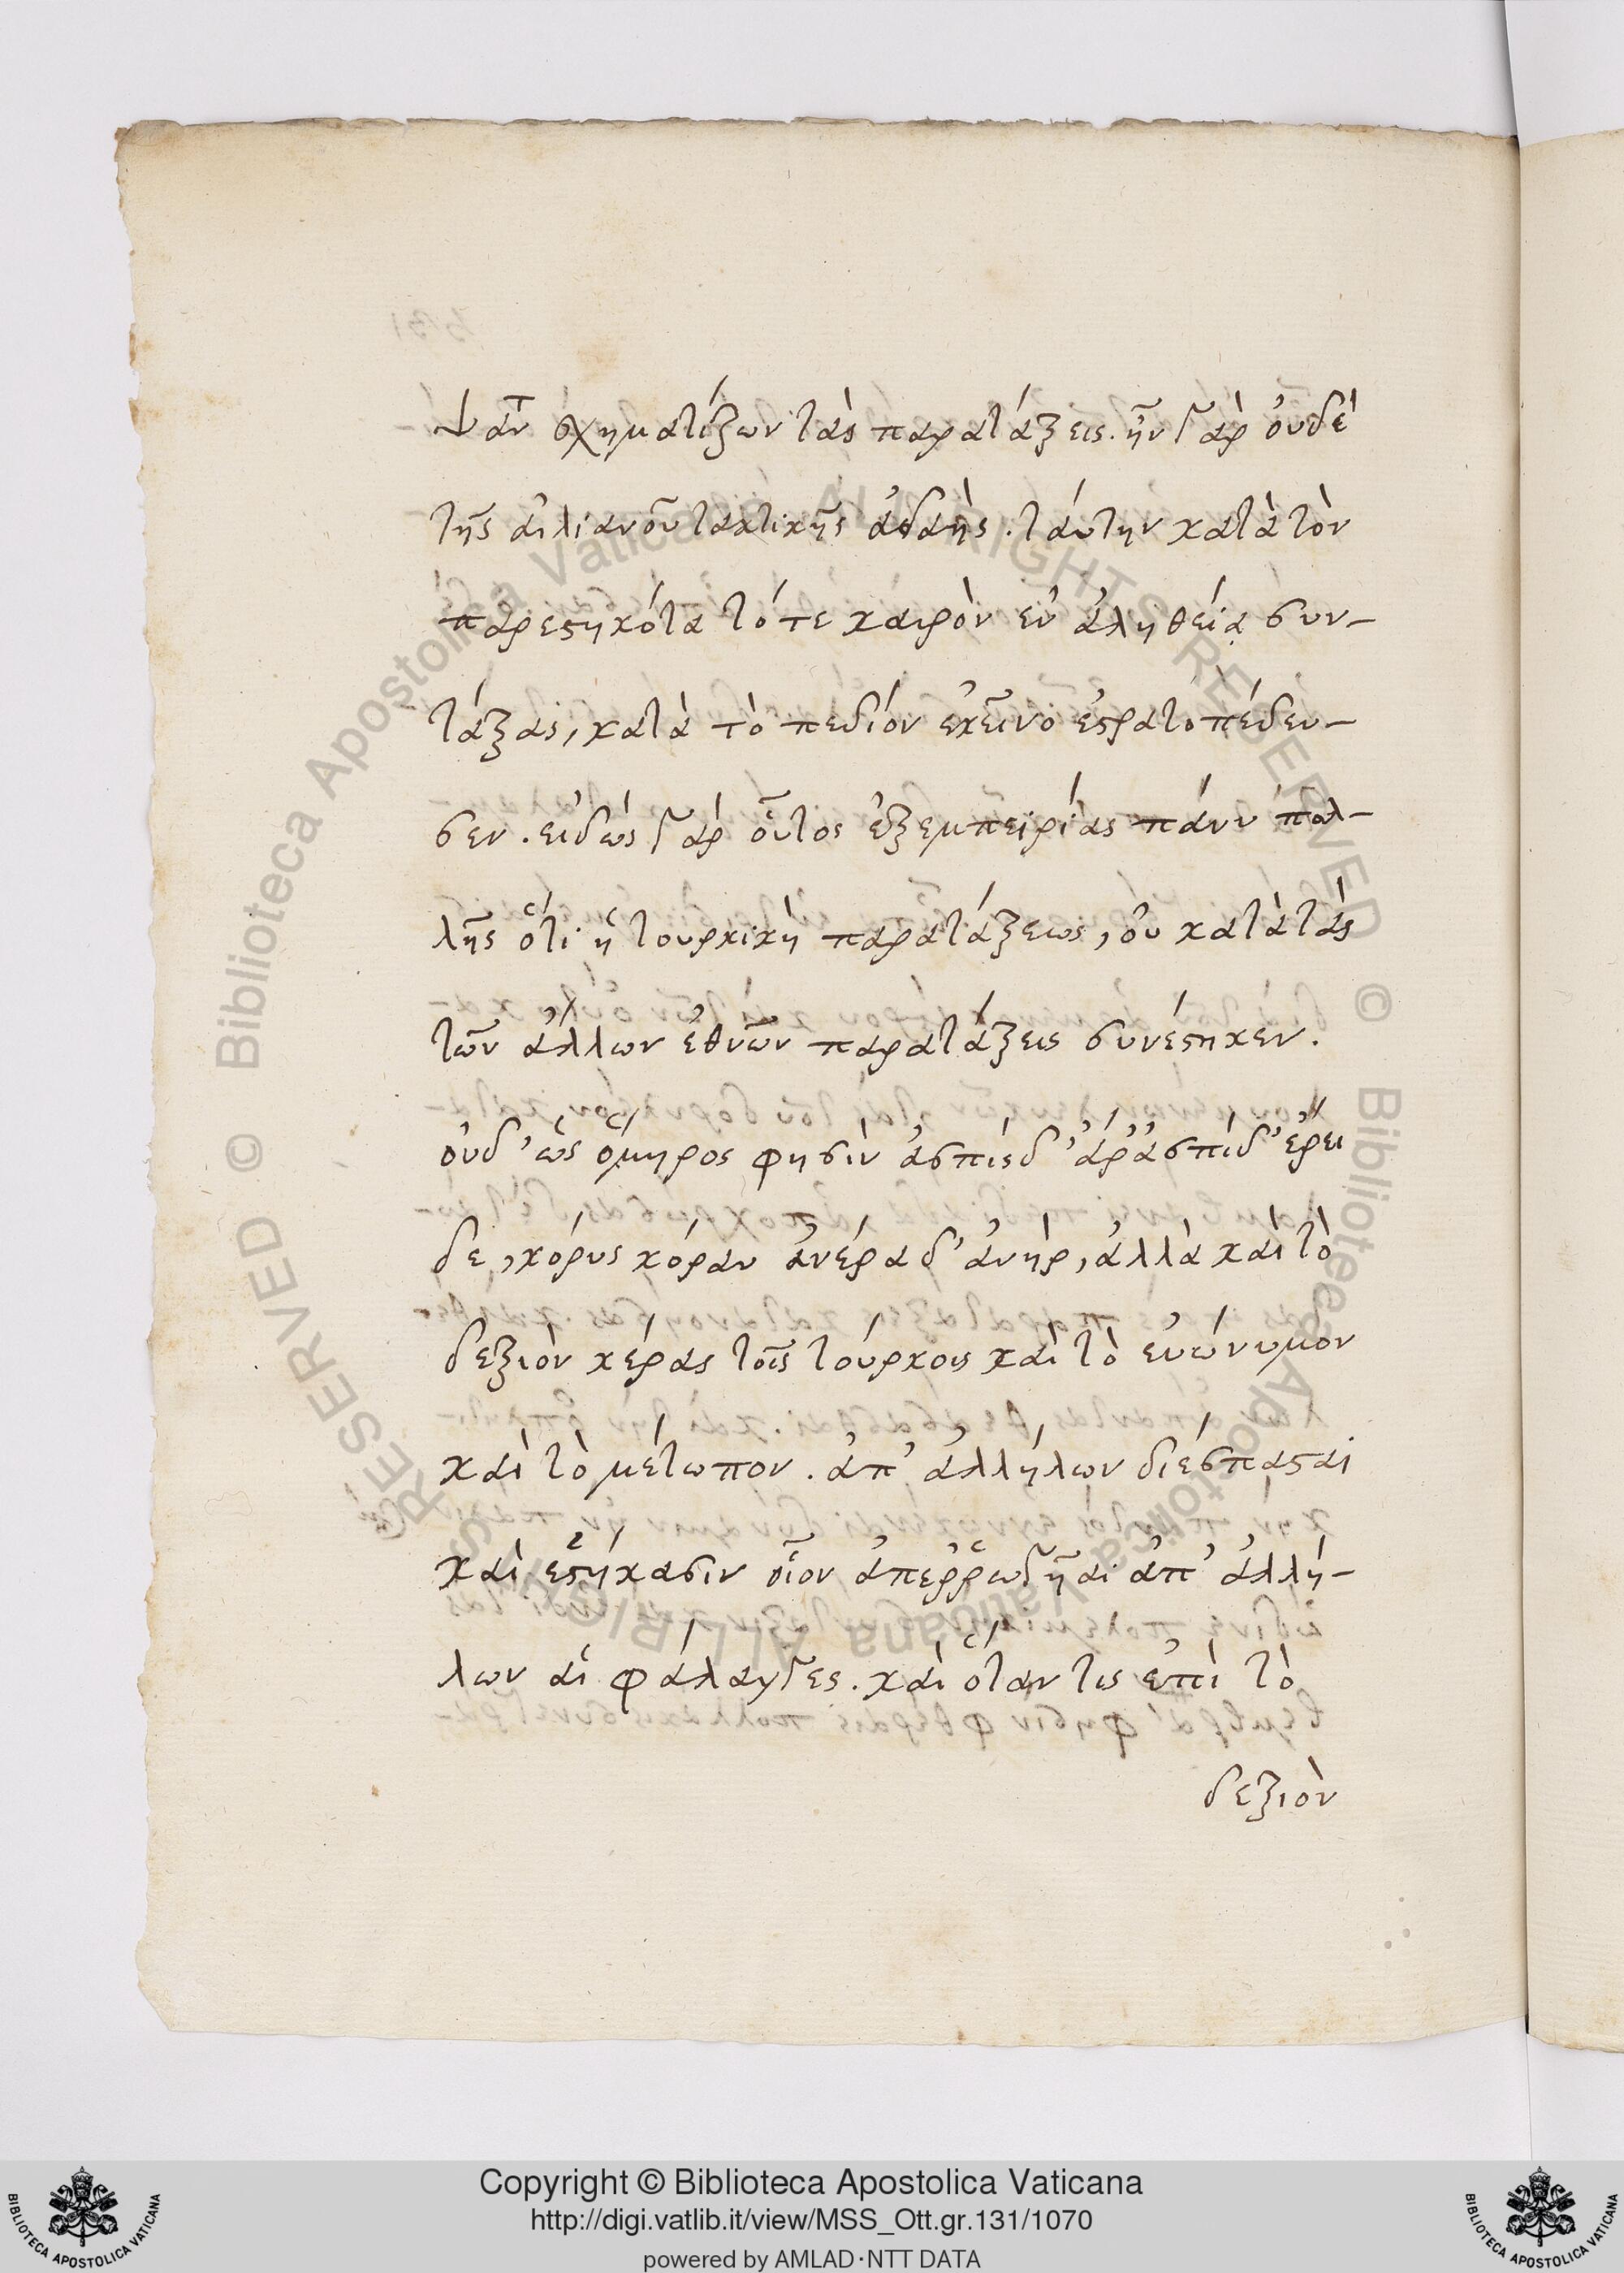 ψαντ σχηματίζων τὰς παρατάξεις. ἦν γὰρ ὀυδὲ
τῆς αἰλιανοῦ τακτικῆς ἀδαὴς. τάυτην κατὰ τὸν
παρεστηκότα τότε καιρὸν εν ἀληθείᾳ συν-
τάξας, κατὰ τὸ πεδίον εκεῖνο ἐστρατοπέδευ-
σεν. ειδὼς γὰρ οὗτος ἐξεμπειρίας πάνυ πολ-
λῆς ὅτι ἡ τουρκικὴ παρατάξεως, ὀυ κατὰ τὰς
τῶν ἄλλων ἐθνῶν παρατάξεις συνέστηκεν.
ὀυδ' ὡς ὅμηρος φησὶν ἀσπὶς δ' ἄρ ἀσπίδ' ἔρει
δε, κόρυς κόραν ἀνέρα δ' ἀνὴρ, ἀλλὰ καὶ τὸ
δεξιὸν κέρας τοῖς τούρκοις καὶ τὸ ευώνυμον
καὶ τὸ μέτωπον. ἀπ' ἀλλήλων διέσπασται
καὶ ἑστήκασιν οἷον ἀπερρωγῆαι ἀπ' ἀλλή-
λων αἱ φάλαγγες. καὶ ὅταν τις επὶ τὸ
δεξιὸν
Copyright © Biblioteca Apostolica Vaticana
http://digi.vatlib.it/view/MSS_Ott.gr.131/1070
powered by AMLAD·NTT DATA